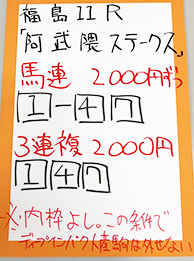 福島11R
「阿武隈ステークス」
馬連 2000円ずつ
1-47
3連複2000円
147
※内枠よし。この条件で
ディープインパクト産駒は外せない